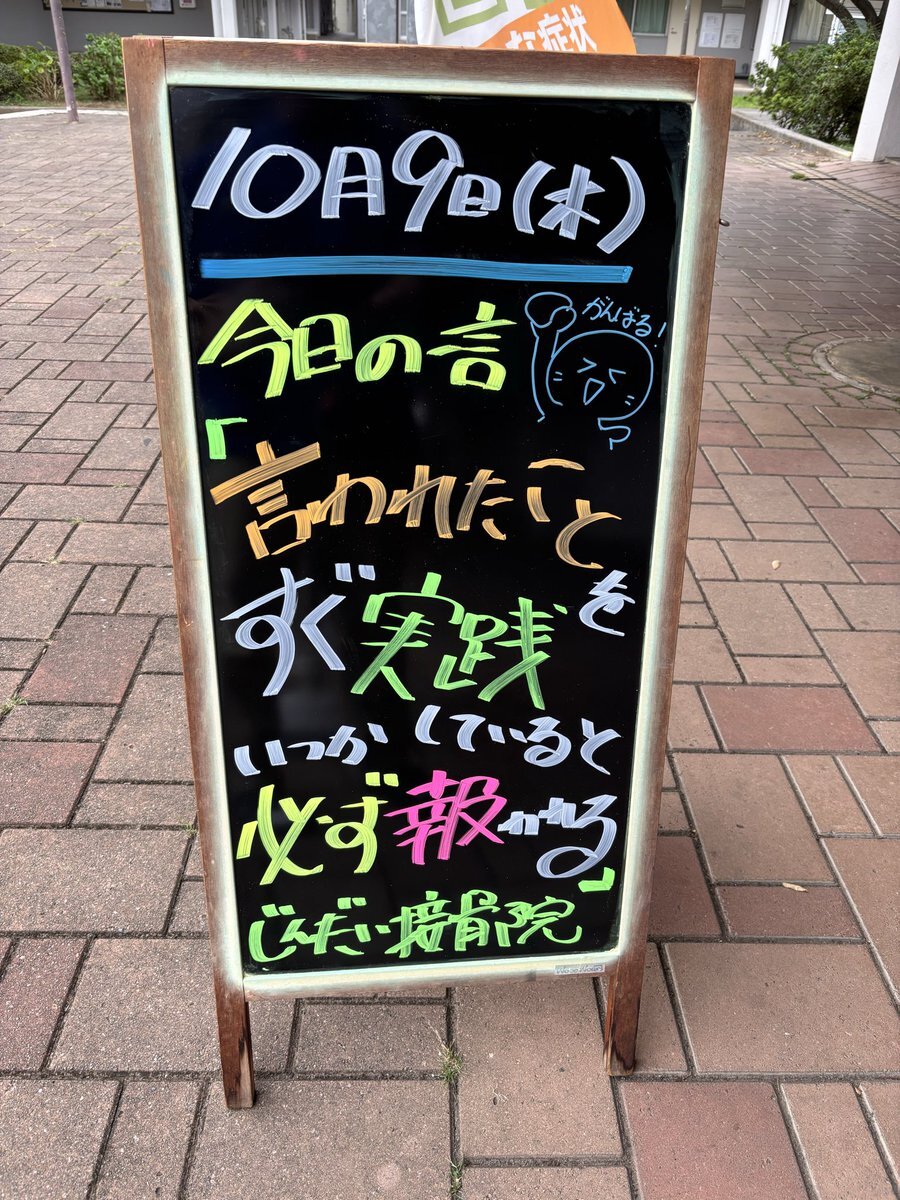 な症状
10月9日(木)
今日の言
がんばる!
「
言われたこと
を
すぐ実践
いつか していると
必ず報われる」
じんだい接骨院